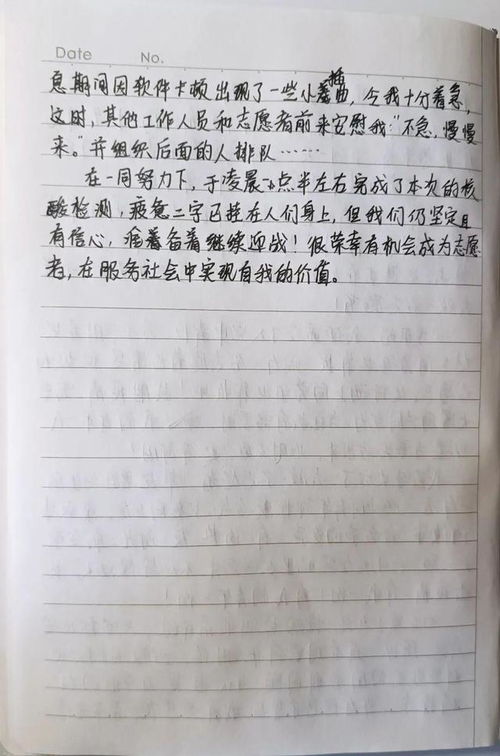 Date No.
息期间因软件卡顿出现了一些小插曲,令我十分着急,
这时,其他工作人员和志愿者前来安慰我:"不急,慢慢
来。"并组织后面的人排队……
在一同努力下,于凌晨 点半左右完成了本次的核
酸检测,疲惫二字已挂在人们身上,但我们仍坚定且
有信心, 着备着继续迎战!很荣幸有机会成为志愿
者,在服务社会中实现自我的价值。